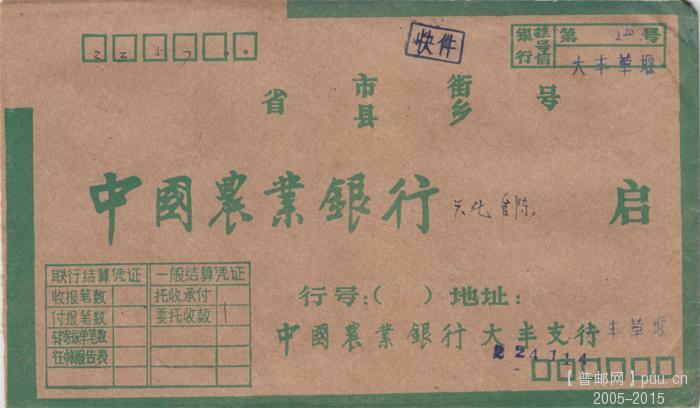 快件
银行 挂号信 第 号
大丰草堰
省 市县 街乡 号
中國農業銀行 兴化 启
联行结算凭证 一般结算凭证
收报笔数 托收承付
付报笔数 委托收款 1
转寄报单笔数
往帐报告表
行号:( )地址:
中國農業銀行大丰支行 丰草堰
224114
【普邮网】puu.cn
2005-2015